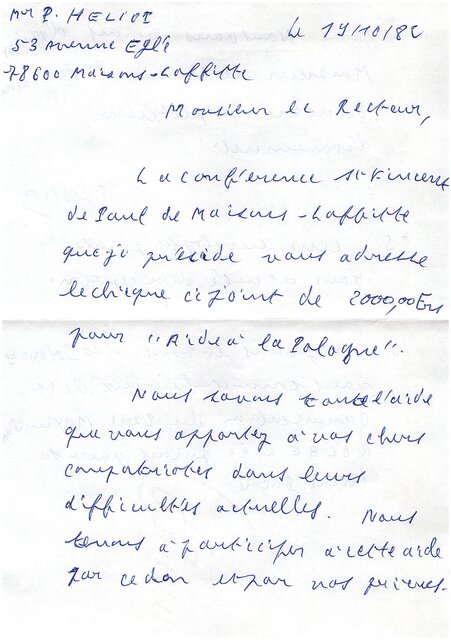 Mr P. HELIOT
Le 19/10/82
53 Avenue Eglé
78600 Maisons-Laffitte
Monsieur le Recteur,
La conférence St Vincent
de Paul de Maisons-Laffitte
que je préside vous adresse
le chèque ci joint de 2000,00
pour "Aide à la Pologne".
Nous savons toute l'aide
que vous apportez à vos chers
compatriotes dans leurs
difficultés actuelles. Nous
tenons à participer à cette aide
par ce don et par nos prières.